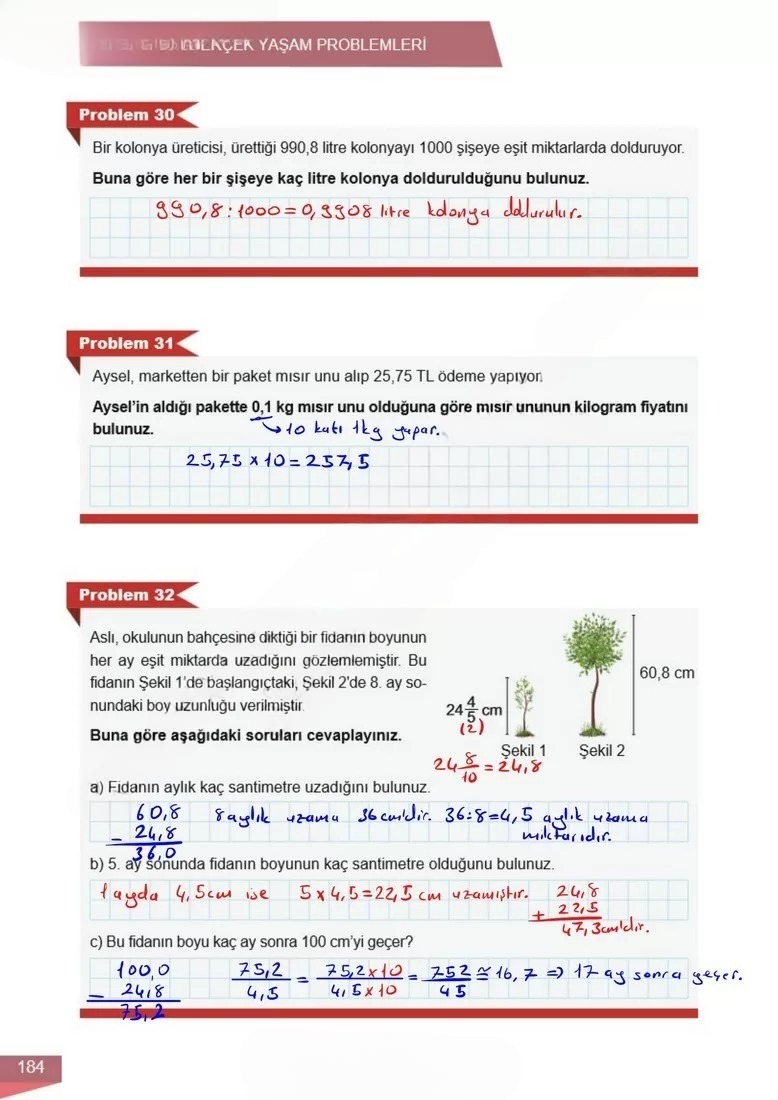 YAŞAM PROBLEMLERİ
Problem 30
Bir kolonya üreticisi, ürettiği 990,8 litre kolonyayı 1000 şişeye eşit miktarlarda dolduruyor.
Buna göre her bir şişeye kaç litre kolonya doldurulduğunu bulunuz.
990,8 : 1000 = 0,9908 litre kolonya doldurulur.
Problem 31
Aysel, marketten bir paket mısır unu alıp 25,75 TL ödeme yapıyor.
Aysel'in aldığı pakette 0,1 kg mısır unu olduğuna göre mısır ununun kilogram fiyatını
bulunuz.
→ 10 katı 1kg yapar.
25,75 x 10 = 257,5
Problem 32
Aslı, okulunun bahçesine diktiği bir fidanın boyunun
her ay eşit miktarda uzadığını gözlemlemiştir. Bu
fidanın Şekil 1'de başlangıçtaki, Şekil 2'de 8. ay so-
nundaki boy uzunluğu verilmiştir.
Buna göre aşağıdaki soruları cevaplayınız.
24 4/5 cm
(2)
60,8 cm
Şekil 1 Şekil 2
24 8/10 = 24,8
a) Fidanın aylık kaç santimetre uzadığını bulunuz.
60,8
- 24,8
36,0
8 aylık uzama 36 cm'dir. 36:8=4,5 aylık uzama
miktarıdır.
b) 5. ay sonunda fidanın boyunun kaç santimetre olduğunu bulunuz.
1 ayda 4,5cm ise 5 x 4,5=22,5 cm uzamıştır.
24,8
+ 22,5
47,3cm'dir.
c) Bu fidanın boyu kaç ay sonra 100 cm'yi geçer?
100,0
- 24,8
75,2
75,2/4,5 = 75,2x10/4,5x10 = 752/45 ≅ 16,7 ⇒ 17 ay sonra geçer.
184